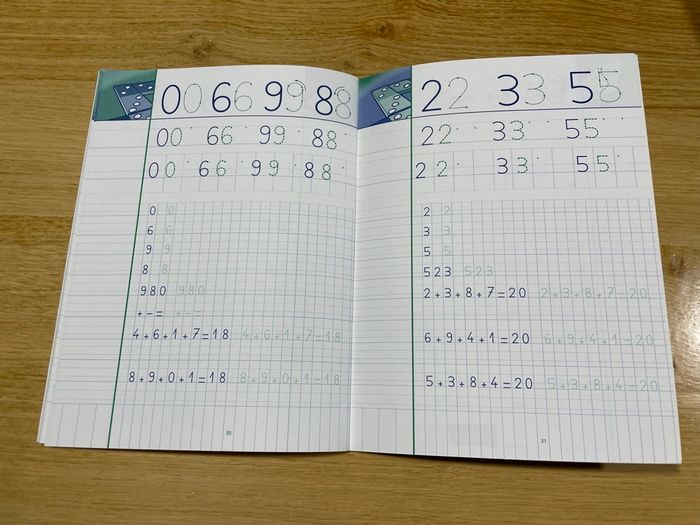 00 66 99 88
00 66 99 88
00 66 99 88
0 0
6 6
9 9
8 8
980 980
+-= +-=
4+6+1+7=18 4+6+1+7=18
8+9+0+1=18 8+9+0+1=18
30
22 33 55
22 33 55
22 33 55
2 2
3 3
5 5
523 523
2+3+8+7=20 2+3+8+7=20
6+9+4+1=20 6+9+4+1=20
5+3+8+4=20 5+3+8+4=20
31